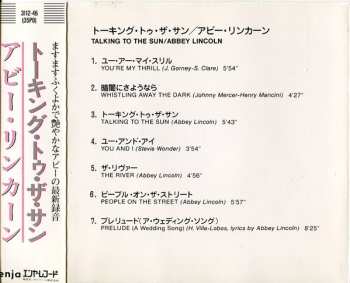 3112-46
(35PD)
ますますふくよかで艶やかなアビーの最新録音
トーキング・トゥ・ザ・サン
アビー・リンカーン
enja エンヤレコード
トーキング・トゥ・ザ・サン/アビー・リンカーン
TALKING TO THE SUN/ABBEY LINCOLN
1. ユー・アー・マイ・スリル
YOU'RE MY THRILL (J. Gorney-S. Clare) 5'54"
2. 暗闇にさようなら
WHISTLING AWAY THE DARK (Johnny Mercer-Henry Mancini) 4'27"
3. トーキング・トゥ・ザ・サン
TALKING TO THE SUN (Abbey Lincoln) 5'43"
4. ユー・アンド・アイ
YOU AND I (Stevie Wonder) 3'54"
5. ザ・リヴァー
THE RIVER (Abbey Lincoln) 4'56"
6. ピープル・オン・ザ・ストリート
PEOPLE ON THE STREET (Abbey Lincoln) 5'57"
7. プレリュード(ア・ウェディング・ソング)
PRELUDE (A Wedding Song) (H. Villa-Lobos, lyrics by Abbey Lincoln) 8'25"